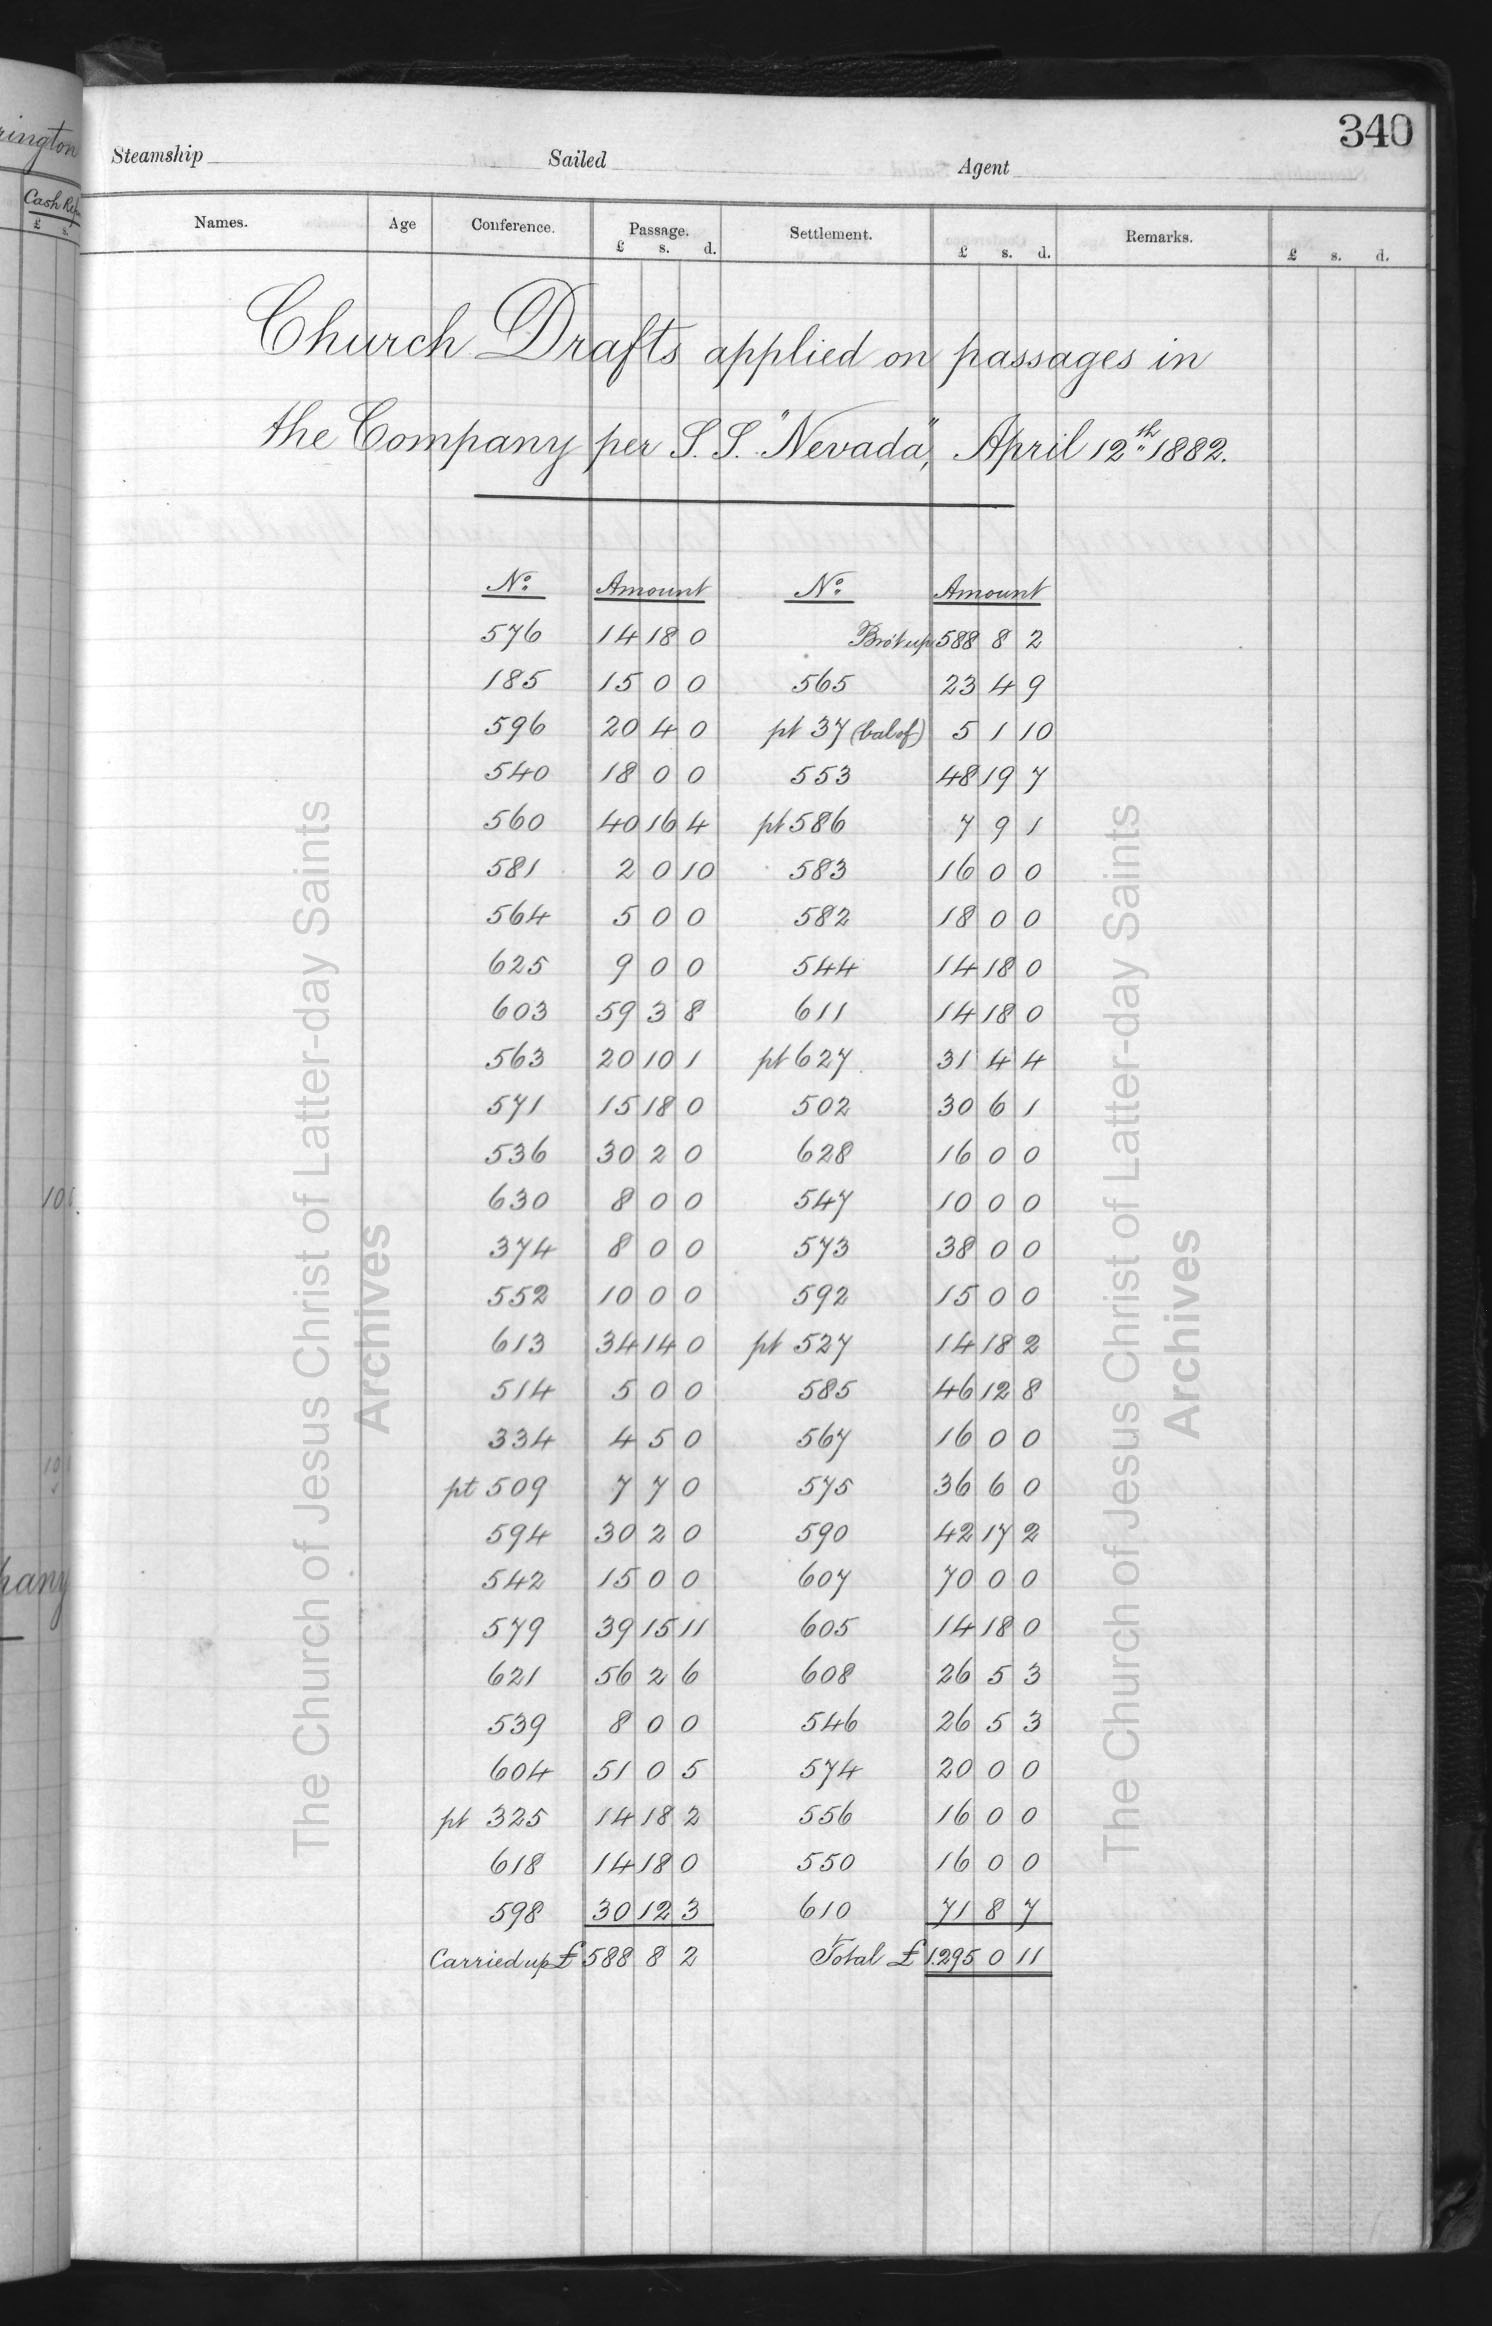 340
Steamship Sailed Agent
Names. Age Conference. Passage. Settlement. Remarks.
£ s. d. £ s. d. £ s. d.
Church Drafts applied on passages in
the Company per S.S. "Nevada", April 12th 1882.
No. Amount No. Amount
576 14 18 0 Bro't up 588 8 2
185 15 0 0 565 23 4 9
596 20 4 0 pt 37 (bal of) 5 1 10
540 18 0 0 553 48 19 7
560 40 16 4 pt 586 7 9 1
581 2 0 10 583 16 0 0
564 5 0 0 582 18 0 0
625 9 0 0 544 14 18 0
603 59 3 8 611 14 18 0
563 20 10 1 pt 627 31 4 4
571 15 18 0 502 30 6 1
536 30 2 0 628 16 0 0
630 8 0 0 547 10 0 0
374 8 0 0 573 38 0 0
552 10 0 0 592 15 0 0
613 34 14 0 pt 527 14 18 2
514 5 0 0 585 46 12 8
334 4 5 0 567 16 0 0
pt 509 7 7 0 575 36 6 0
594 30 2 0 590 42 17 2
542 15 0 0 607 70 0 0
579 39 15 11 605 14 18 0
621 56 2 6 608 26 5 3
539 8 0 0 546 26 5 3
604 51 0 5 574 20 0 0
pt 325 14 18 2 556 16 0 0
618 14 18 0 550 16 0 0
598 30 12 3 610 71 8 7
Carried up £ 588 8 2 Total £ 1295 0 11
The Church of Jesus Christ of Latter-day Saints
Archives
The Church of Jesus Christ of Latter-day Saints
Archives